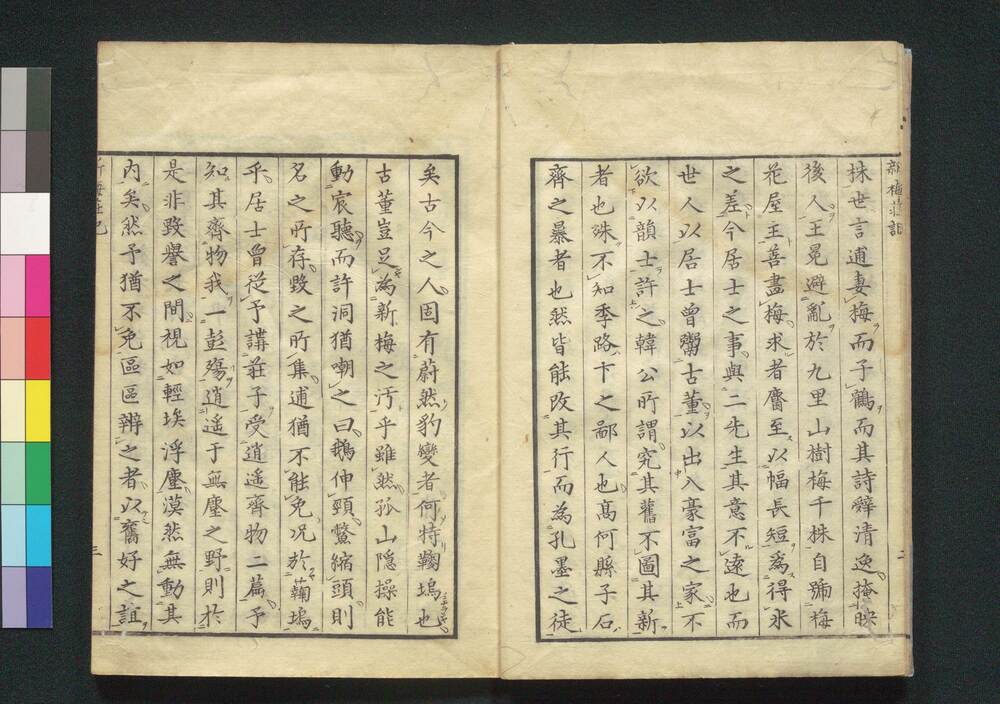 新梅莊記
株世言逋妻梅而子鶴而其詩辭清逸掩映
後人王冕避亂於九里山樹梅千株自號梅
花屋主善畫梅求者麕至以幅長短為得米
之差今居士之事與二先生其意不遠也而
世人以居士曾鬻古董以出入豪富之家不
欲以韻士許之韓公所謂究其舊不圖其新
者也殊不知季路卞之鄙人也高何縣子石
齊之暴者也然皆能改其行而為孔墨之徒
二
矣古今之人固有蔚然豹變者何特鞠塢也
古董豈足為新梅之汚乎雖然孤山隱操能
動宸聽而許洞猶嘲之曰鵝伸頸鱉縮頭則
名之所存毀之所集逋猶不能免况於鞠塢
乎居士曾從予講莊子受逍遥齊物二篇予
知其齊物我一彭殤逍遥于無塵之野則於
是非毀譽之間視如輕埃浮塵漠然無動其
内矣然予猶不免區區辨之者以舊好之誼
三